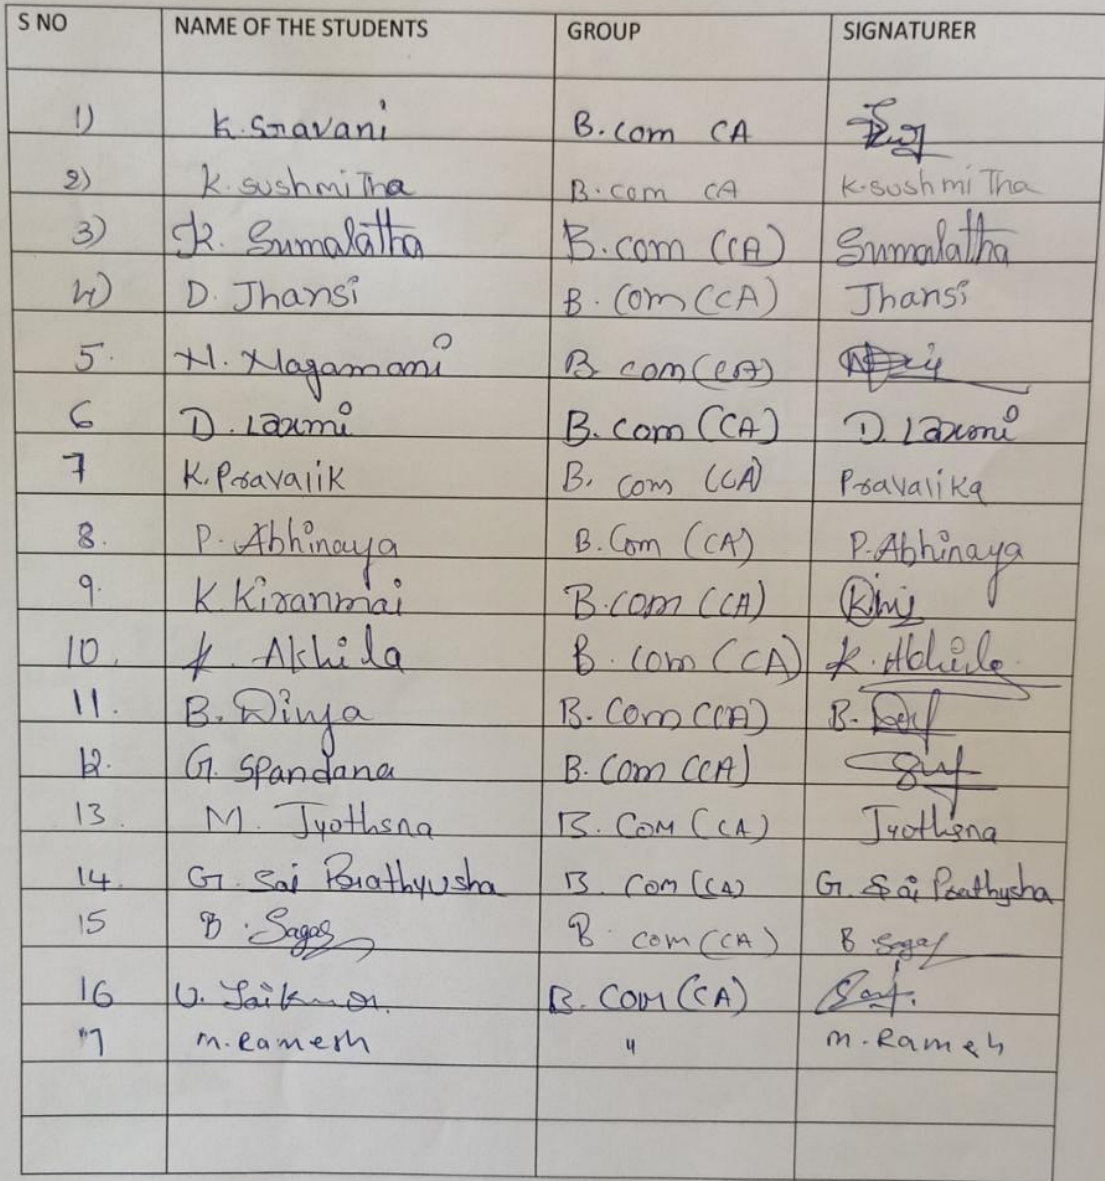 S NO NAME OF THE STUDENTS GROUP SIGNATURER
1) K. Sravani B.com CA
2) K. sushmiTha B.com CA K.sushmiTha
3) K. Sumalatha B.com (CA) Sumalatha
4) D. Jhansi B. Com (CA) Jhansi
5. N. Nagamani B. com (CA)
6 D. Laxmi B. Com (CA) D. Laxmi
7 K. Pravalik B. com (CA) Pravalika
8. P. Abhinaya B. Com (CA) P. Abhinaya
9. K Kiranmai B.com (CA)
10. K. Akhila B. Com (CA) K. Akhila
11. B. Divya B. Com (CA) B.
12. G. Spandana B. Com (CA)
13. M. Jyothsna B. COM (CA) Jyothsna
14. G. Sai Prathyusha B. Com (CA) G. Sai Prathysha
15 B. Sagar B. com (CA) B Sagar
16 U. Saikumar B. COM (CA)
17 M. Ramesh " M. Ramesh